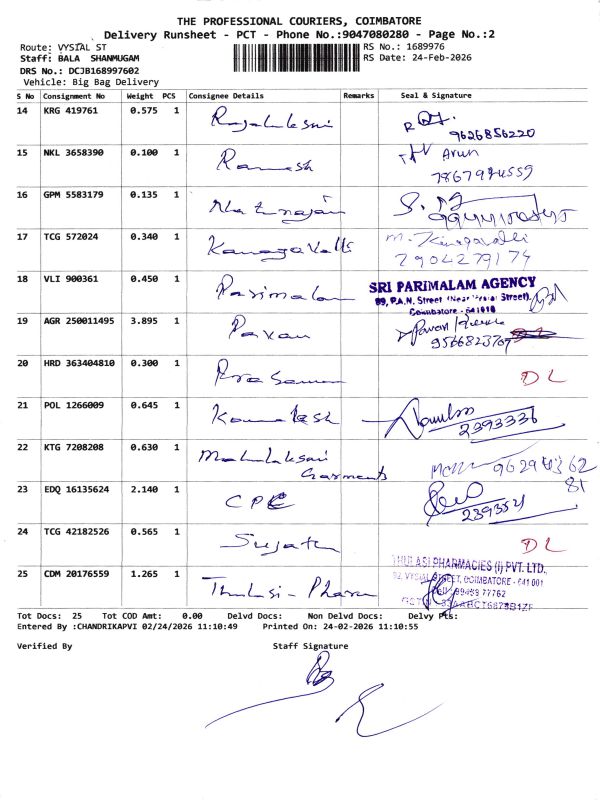 THE PROFESSIONAL COURIERS, COIMBATORE
Delivery Runsheet - PCT - Phone No.:9047080280 - Page No.:2
Route: VYSIAL ST
RS No.: 1689976
Staff: BALA SHANMUGAM
RS Date: 24-Feb-2026
DRS No.: DCJB168997602
Vehicle: Big Bag Delivery
S No Consignment No Weight PCS Consignee Details Remarks Seal & Signature
14 KRG 419761 0.575 1 Rajalaksmi
9626856220
15 NKL 3658390 0.100 1 Ramesh Arun
16 GPM 5583179 0.135 1 Natarajan
17 TCG 572024 0.340 1 KanagaValli
7904279174
18 VLI 900361 0.450 1 Parimalam SRI PARIMALAM AGENCY
99, P.A.N. Street (Near Vysial Street),
Coimbatore - 641018
19 AGR 250011495 3.895 1 Pavan
20 HRD 363404810 0.300 1 DL
21 POL 1266009 0.645 1 Kamalesh
2393336
22 KTG 7208208 0.630 1 Mahalaksmi
Garments
23 EDQ 16135624 2.140 1 CPC
24 TCG 42182526 0.565 1 Sujatha DL
25 CDM 20176559 1.265 1 Thulasi-Pharm THULASI PHARMACIES (I) PVT. LTD.,
92, VYSIAL STREET, COIMBATORE - 641 001
Tot Docs: 25 Tot COD Amt: 0.00 Delvd Docs: Non Delvd Docs: Delvy Pts:
Entered By :CHANDRIKAPVI 02/24/2026 11:10:49 Printed On: 24-02-2026 11:10:55
Verified By Staff Signature